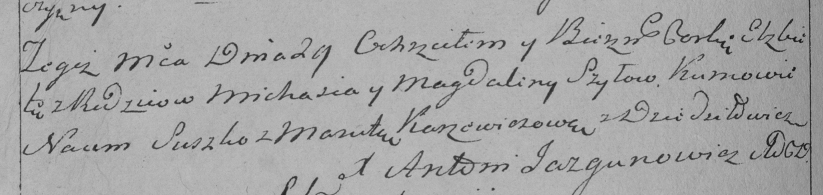 Tegoż mca Dnia 29 Ochrzciłem y Bierzm Corkę Elzbie
tę z Rodzicow Michasia y Magdaliny Szyłow. Kumowie
Naum Suszko z Marutą Karzewiczową z Dziedziłowicz
X Antoni Jazgunowicz